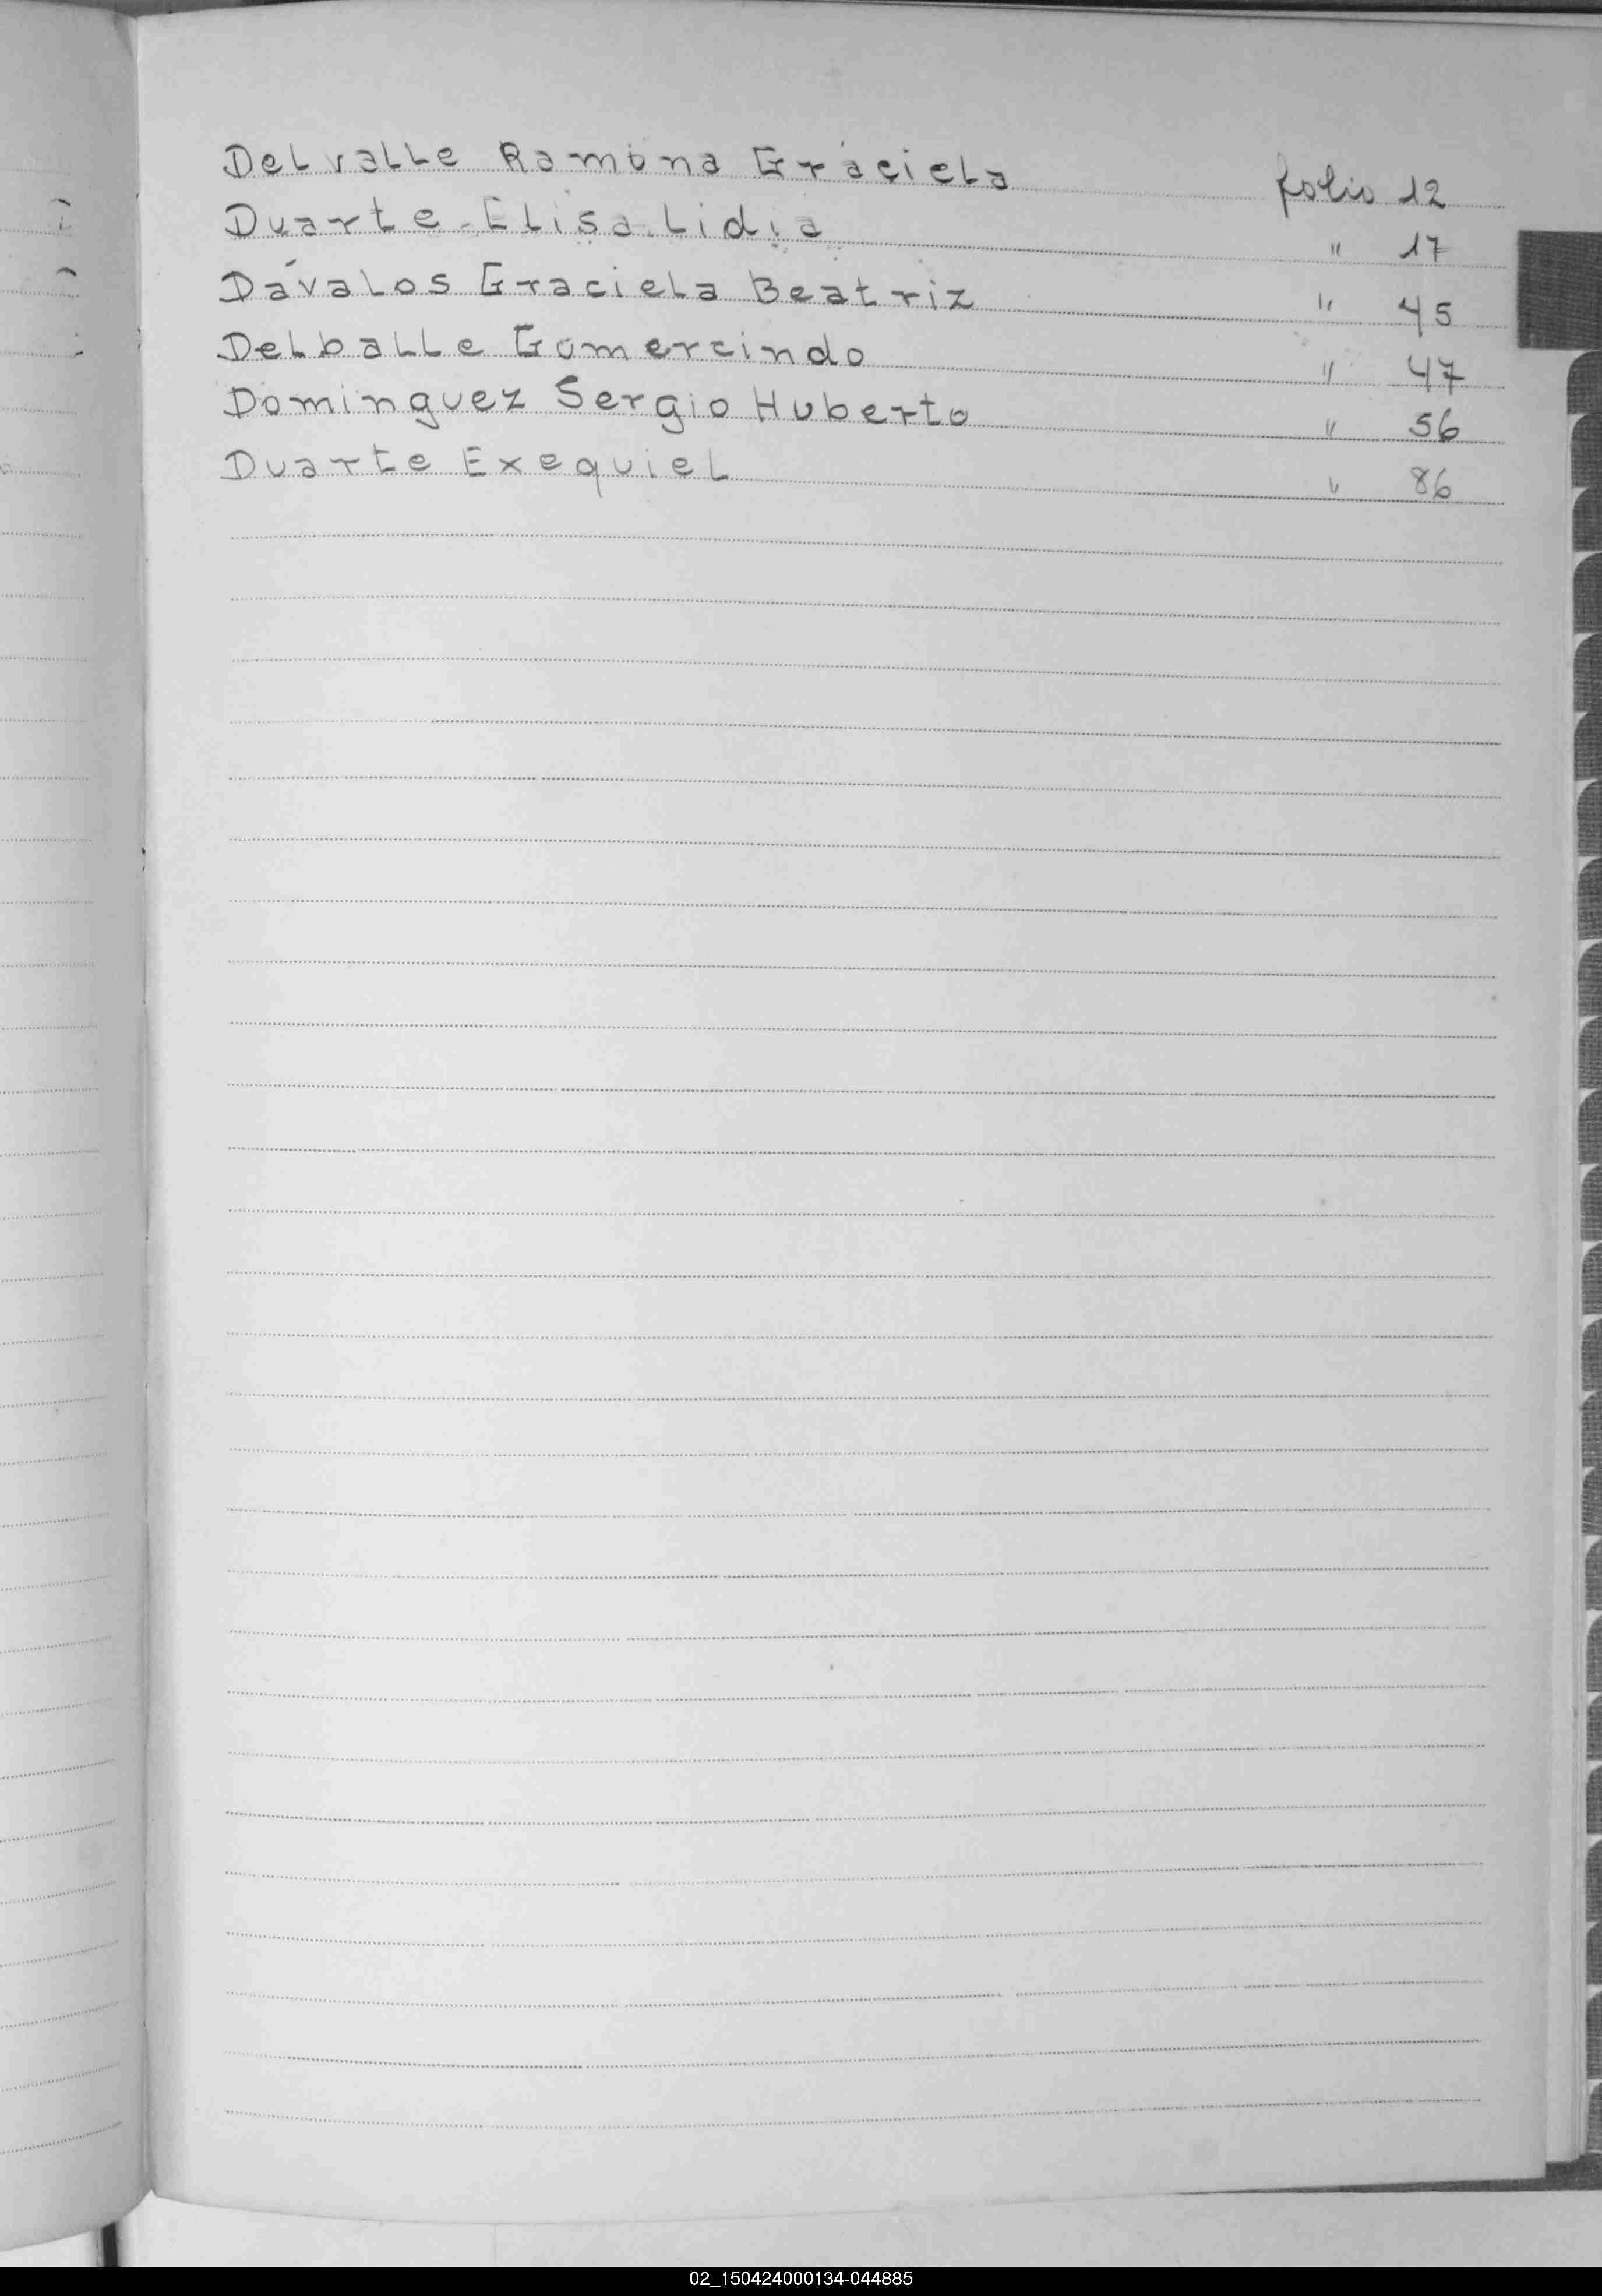 Delvalle Ramona Graciela folio 12
Duarte Elisa Lidia " 17
Dávalos Graciela Beatriz " 45
Delballe Gumercindo " 47
Dominguez Sergio Huberto " 56
Duarte Exequiel " 86
02_150424000134-044885